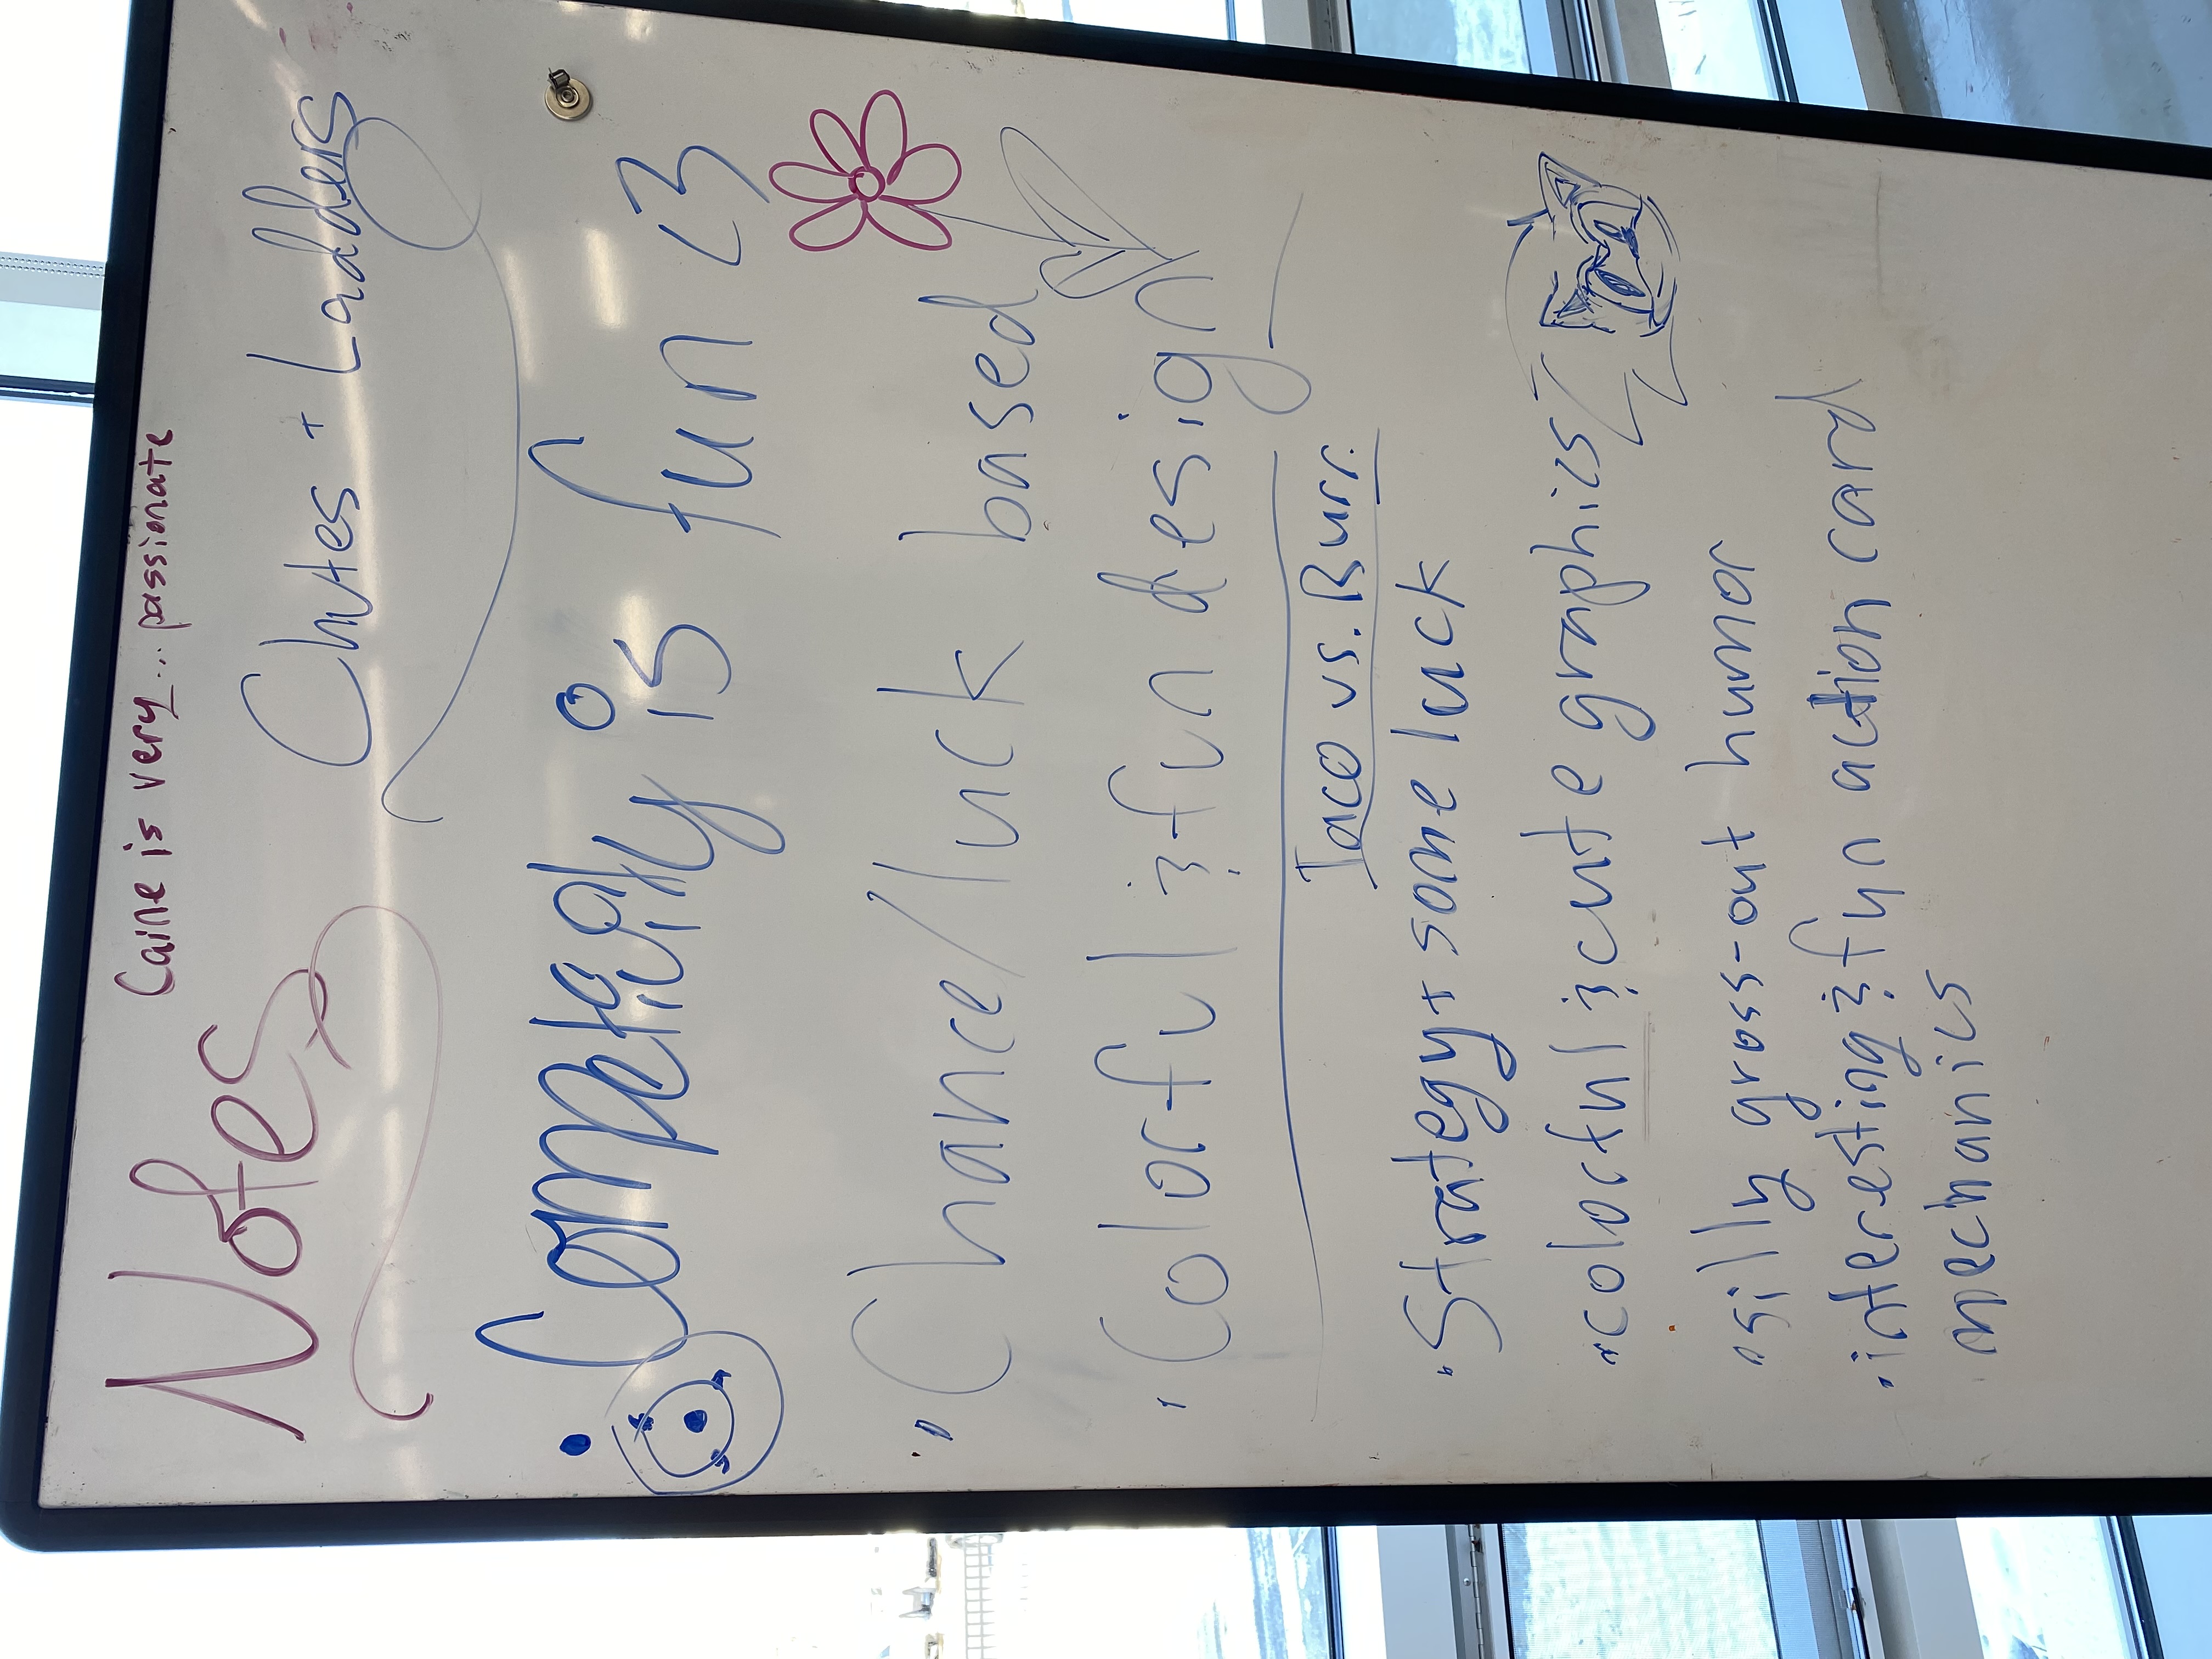 Caine is very... passionate
Notes
Chutes + Ladders
• Competivity is fun <3
• Chance/luck based
• Colorful & fun design
Taco vs. Burr.
• Strategy + some luck
• colorful & cute graphics
• silly gross-out humor
• interesting & fun action card
mechanics